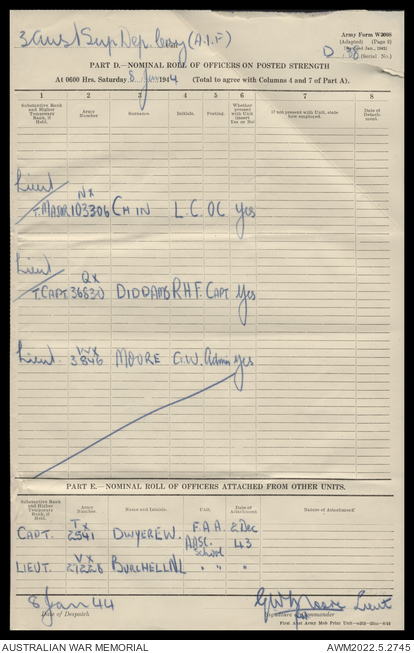 3 Aust Sup Dep Coy (A.I.F)
Army Form W3008
(Adapted) (Page 2)
Jan., 1943)
D 38 (Serial No.)
PART D.—NOMINAL ROLL OF OFFICERS ON POSTED STRENGTH
At 0600 Hrs. Saturday 8 Jan 1944 (Total to agree with Columns 4 and 7 of Part A).
1 2 3 4 5 6 7 8
Substantive Rank and Higher Temporary Rank, if Held. Army Number. Surname. Initials. Posting. Whether present with Unit (insert Yes or No) If not present with Unit, state how employed. Date of Detachment.
Lieut NX
T.MAJOR 103306 CHIN L.C. OC Yes
Lieut QX
T.CAPT 36830 DIDDAMS R.H.F. CAPT Yes
Lieut. WX
3846 MOORE G.W. Admin Yes
PART E.—NOMINAL ROLL OF OFFICERS ATTACHED FROM OTHER UNITS.
Substantive Rank and Higher Temporary Rank, if Held. Army Number. Name and Initials. Unit. Date of Attachment Nature of Attachment.
CAPT. TX 2541 DWYER E.W. F.A.A. 2 Dec
AASC. School 43
LIEUT. VX BURCHELL N.L " " "
8 Jan 44
Date of Despatch
GW Moore Lieut
Signature Commander
First Aust Army Mob Print Unit
AUSTRALIAN WAR MEMORIAL
AWM2022.5.2745